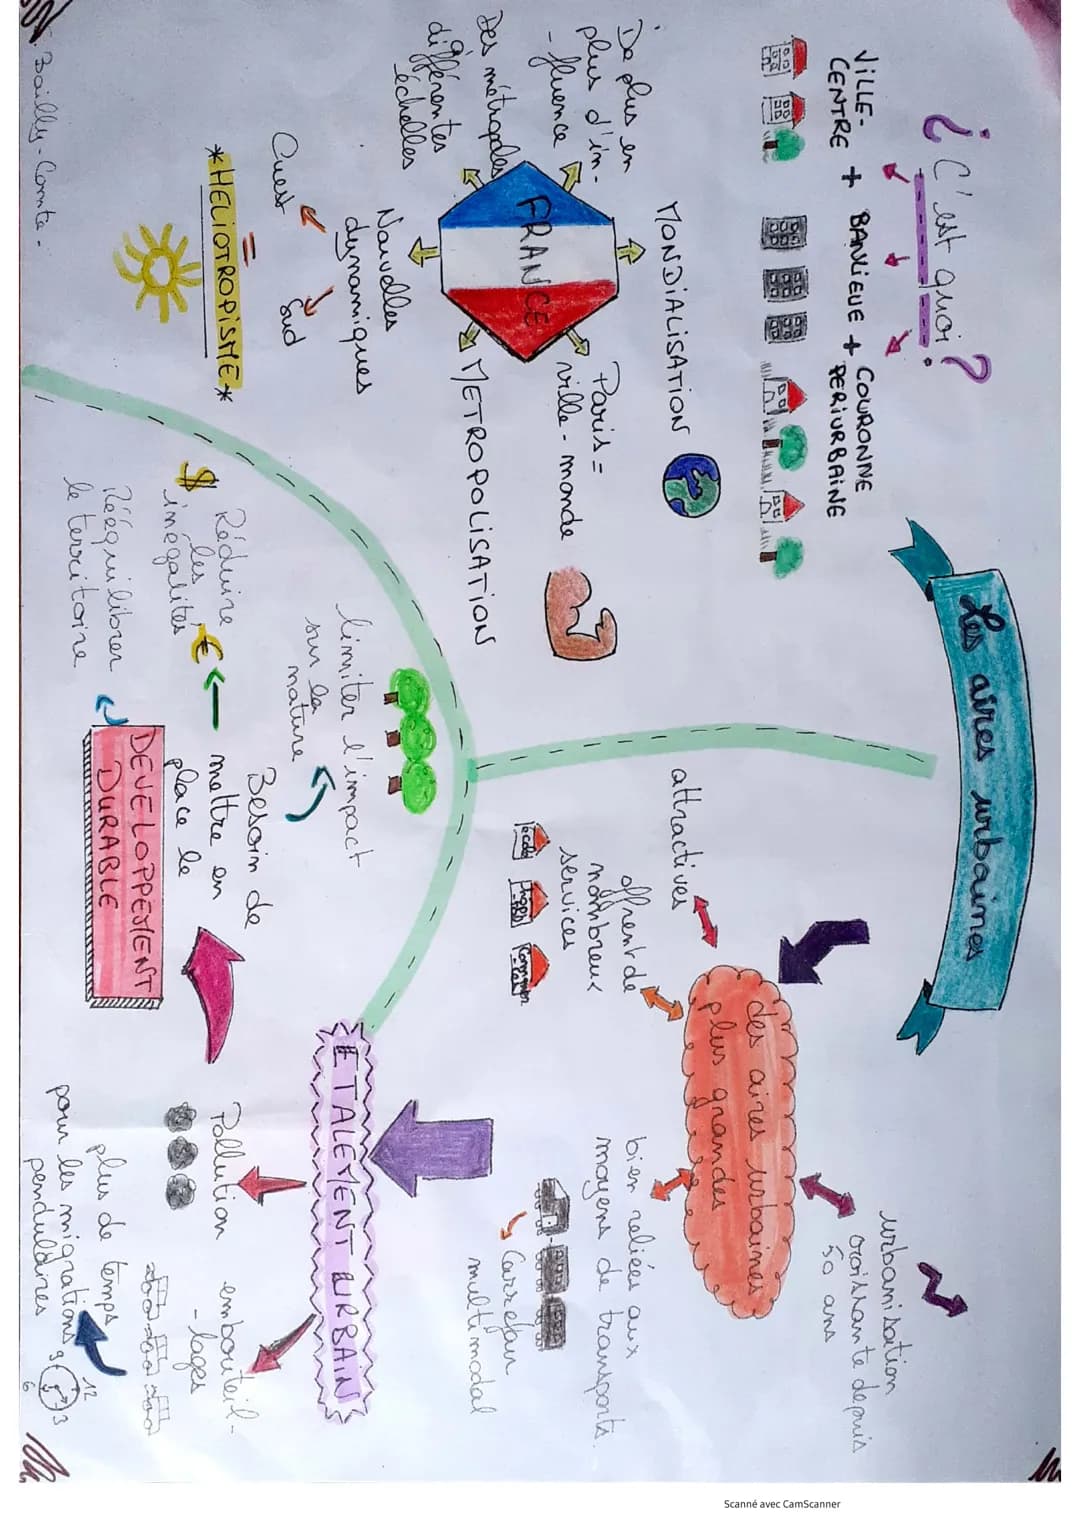 Les aires urbaines
¿ C'est quoi ?
VILLE-
CENTRE + BANLIEUE + COURONNE
PERIURBAINE
MONDIALISATION
De plus en
plus d'in-
-fluence
Des métropoles
différentes
échelles
FRANCE
Paris =
ville-monde
METROPOLISATION
Nouvelles
dynamiques
Ouest
Sud
=
*HELIOTROPISME*
des aires urbaines
plus grandes
urbanisation
croissante depuis
50 ans
attractives
offrent de
nombreux
services
école
bien reliées aux
moyens de transports.
Carrefour
multimodal
ETALEMENT URBAIN
Pollution
embouteil-
-lages
plus de temps
pour les migrations
pendulaires
12
9
3
6
Besoin de
mettre en
place le
DEVELOPPEMENT
DURABLE
limiter l'impact
sur la
nature
Réduire
les
inégalités
$ €
Rééquilibrer
le territoire
Bailly-Comte-
Scanné avec CamScanner